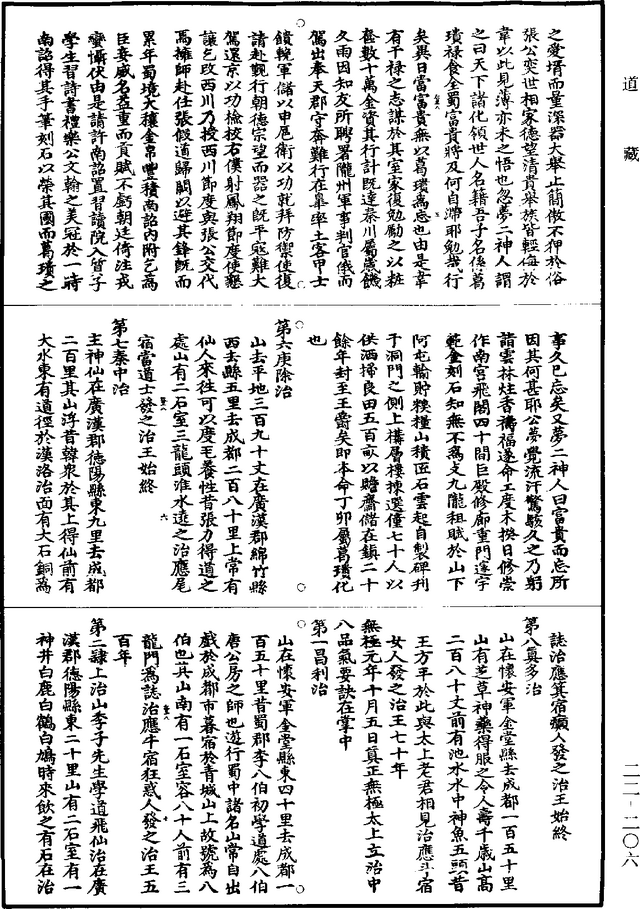 道藏
二二-二〇六
之愛壻而量深器大舉止簡傲不狎於俗
張公奕世相家德望清貴舉族皆輕侮於
韋以此見薄亦未之悟也忽夢二神人謂
之曰天下諸化領世人名籍吾子名係葛
璝祿食全蜀富貴將及何自滯耶勉哉行
矣異日當富貴無以葛璝為忘也由是韋
有干祿之志謀於其室家復勉勵之以粧
奩數十萬金資其行計既達秦川屬歲饑
久雨因知友所聘署隴州軍事判官俄而
駕出奉天郡守奔難行在皐率土客甲士
饋輓軍儲以申扈衛以功就拜防禦使復
請赴覲行朝德宗望而器之既平寇難大
駕還京以功檢校右僕射鳳翔節度使懇
讓乞改西川乃授西川節度與張公交代
焉擁師赴任張假道歸闕以避其鋒既而
累年蜀境大穰金帛豐積南詔內附乞為
臣妾威名益重而貢賦不虧朝廷倚注戎
蠻懾伏由是請許南詔置習讀院入質子
學生習詩書禮樂公文翰之美冠於一時
南詔得其手筆刻石以榮其國而葛璝之
事久已忘矣又夢二神人曰富貴而忘所
因其何甚耶公夢覺流汗驚駭久之乃躬
詣雲林炷香禱福遂命工度木揆日修崇
作南宮飛閣四十間巨殿修廊重門邃宇
範金刻石知無不為支九隴租賦於山下
阿屯輸貯糗糧山積匠石雲起自製碑刊
于洞門之側上構層樓揀選僮七十人以
供洒掃良田五百畝以贍齋儲在鎮二十
餘年封至王爵矣即本命丁卯屬葛璝化
也
第六庚除治
山去平地三百九十丈在廣漢郡綿竹縣
西去縣五里去成都二百八十里上常有
仙人來往可以度毛養性昔張力得道之
處山有二石室三龍頭淮水遶之治應尾
宿當道士發之治王始終
第七秦中治
主神仙在廣漢郡德陽縣東九里去成都
二百里其山浮昔韓衆於其上得仙前有
大水東有道徑於漢洛治面有大石銅為
誌治應箕宿癩人發之治王始終
第八真多治
山在懷安軍金堂縣去成都一百五十里
山有芝草神藥得服之令人壽千歲山高
二百八十丈前有池水水中神魚五頭昔
王方平於此與太上老君相見治應斗宿
女人發之治王七十年
無極元年十月五日真正無極太上立治中
八品氣要訣在掌中
第一昌利治
山在懷安軍金堂縣東四十里去成都一
百五十里昔蜀郡李八伯初學道處八伯
唐公房之師也遊行蜀中諸名山常自出
戲於成都市暮宿於青城山上故號為八
伯也其山南有一石室容八十人前有三
龍門為誌治應牛宿狂惑人發之治王五
百年
第二隷上治山李子先生學道飛仙治在廣
漢郡德陽縣東二十里山有二石室有一
神井白鹿白鶴白鳩時來飲之有石在治